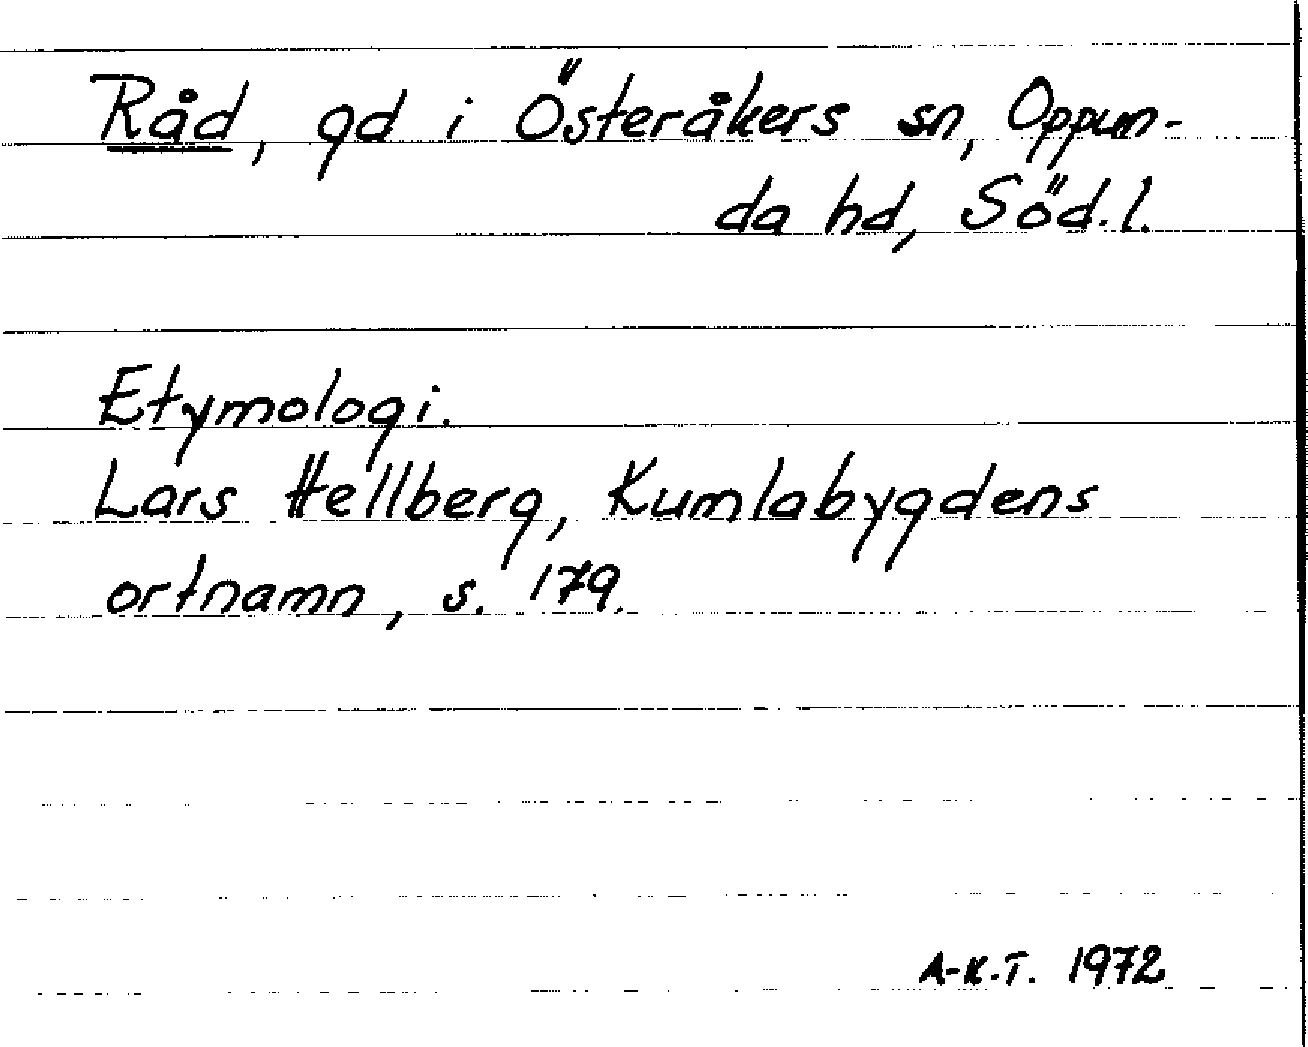 Råd, gd i Österåkers sn, Oppun-
da hd, Söd.l.
Etymologi.
Lars Hellberg, Kumlabygdens
ortnamn, s. 179.
A-K.T. 1972